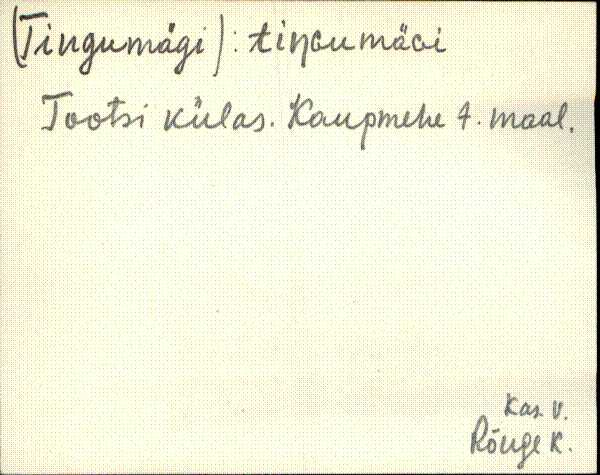 (Tingumägi): tiŋɢumäɢi
Tootsi külas. Kaupmehe t. maal.
Kas. v.
Rõuge K.